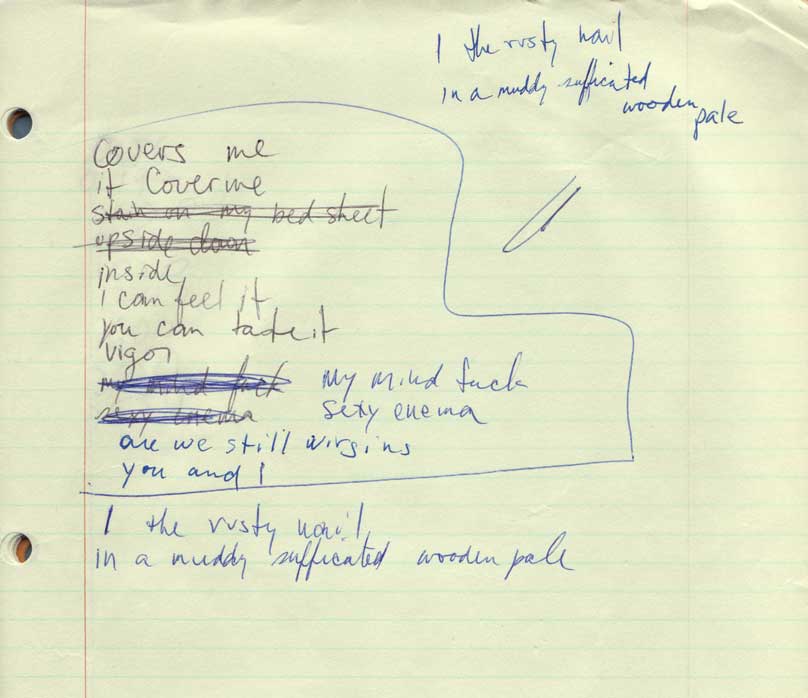 I the rusty nail
in a muddy sufficated
wooden
pale
Covers me
it Cover me
stain on my bed sheet
upside down
inside
i can feel it
you can taste it
vigor
my mind fuck my mind fuck
sexy enema sexy enema
are we still virgins
you and I
I the rusty nail
in a muddy sufficated wooden pale